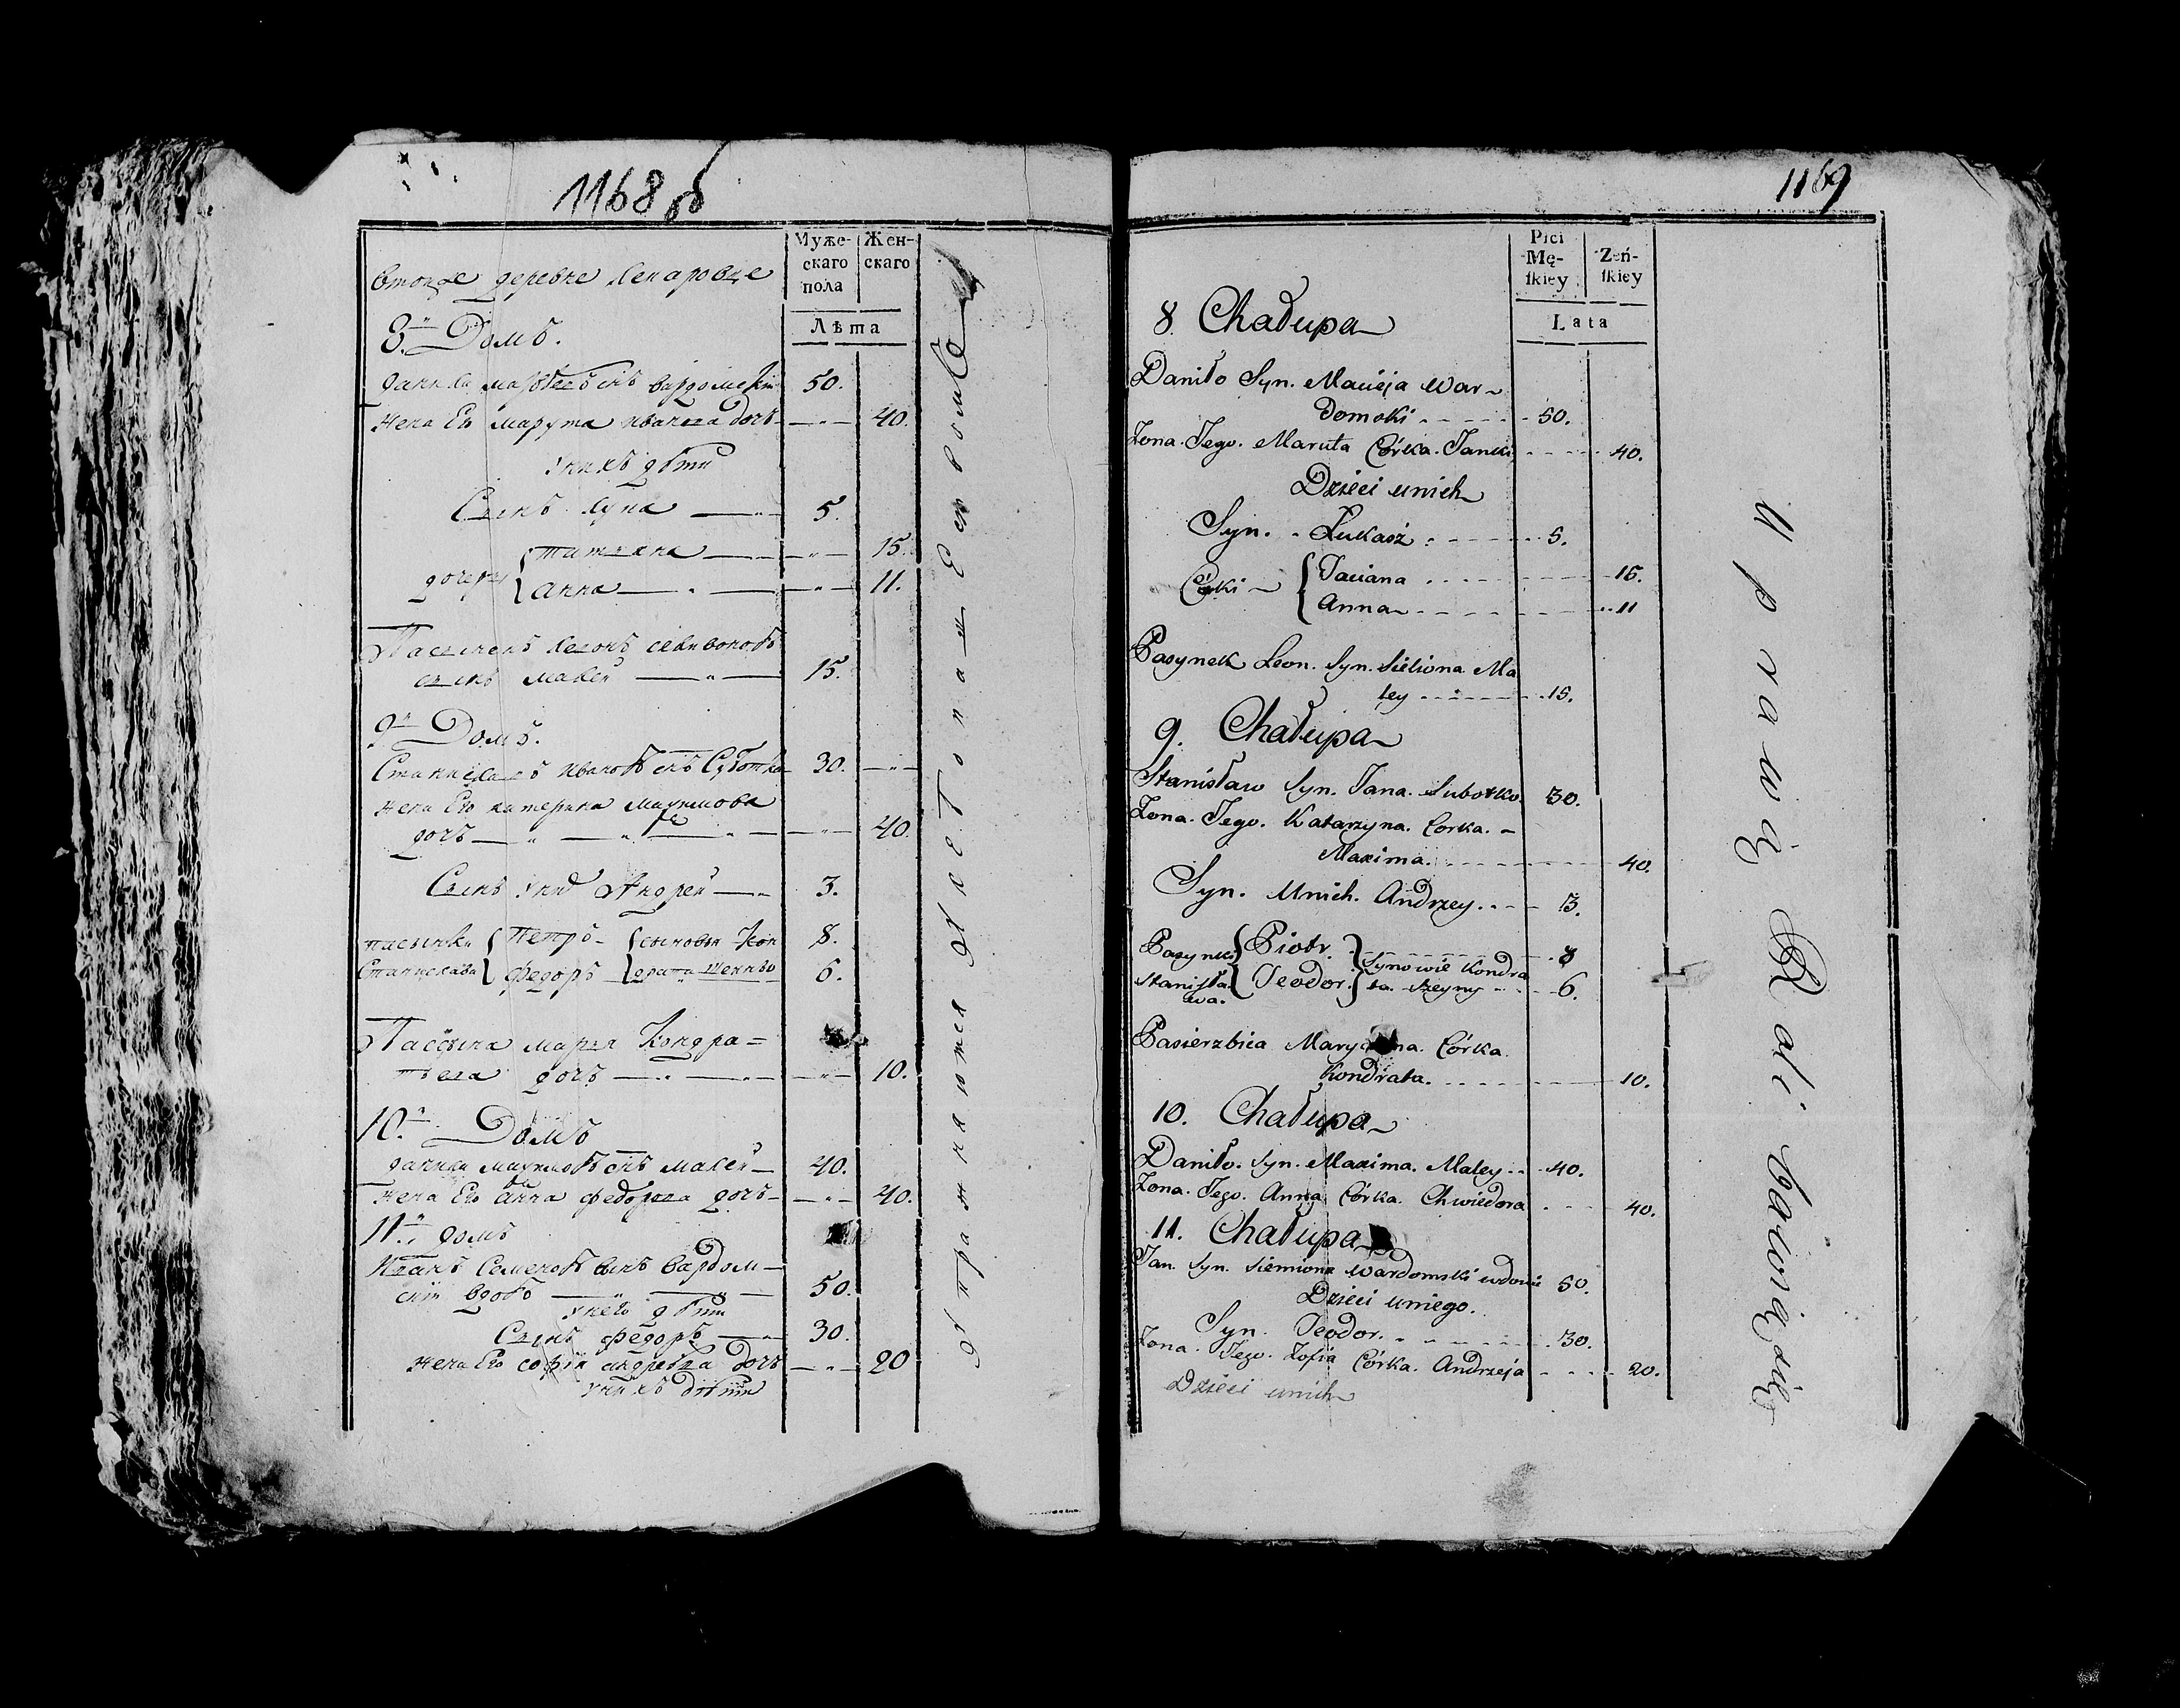 1168 об
Муже-
скаго
пола
Жен-
скаго
Лѣта
втойже деревне
8й Домъ.
50.
Жена Его Марута Иванова дочь 40.
унихъ дѣти
Сынъ Лука 5.
дочери Татьяна 15.
Анна 11.
Пасынокъ Леонъ
сынъ Малей 15.
9й Домъ.
Станиславъ Ивановъ снъ Суботка 30.
Жена Его Катерина Максимова
дочь 40.
Сынъ у них Андрей 3.
пасынки Петръ сыновья Кон 8.
Станислава Федоръ драта 6.
Марья Кондра=
тьева дочь 10.
10.й Домъ
Данила Максимовъ снъ Малей 40.
Жена Его Анна Федорова дочь 40.
11й домъ
Иванъ Семеновъ сынъ Вардом-
скій вдовъ 50.
унего дѣти
Сынъ Федоръ 30.
Жена Его Софія Андреева дочь 20
унихъ дѣти
1169
Płci
Mę-
ſkiey
Zeń-
ſkiey
Lata
8. Chałupa
Daniło Syn. Macieja War-
domski 50.
Zona. Jego. Maruta Córka. Janki 40.
Dzieci unich
Syn. Łukasz 5.
Córki Taciana 15.
Anna 11
Pasynek Leon. Syn. Sieliona Ma
ley 15.
9. Chałupa
Stanisław Syn. Jana. Subotko 30.
Zona. Jego. Katarzyna. Corka.
Maxima. 40.
Syn. Unich. Andrzey. 3.
Pasynki Piotr. Synowie Kondra 8
Stanisła Teodor. ta. 6.
wa.
Pasierzbica Maryanna. Córka.
Kondrata. 10.
10. Chałupa
Daniło. Syn. Maxima. Maley 40.
Zona. Jego. Anna Córka. Chwiedora 40.
11. Chałupa
Jan Syn. Siemiona Wardomski wdowiec 50.
Dzieci uniego.
Syn. Teodor. 30.
Zona. Jego. Zofia Córka. Andrzeja 20.
Dzieci unich
Uprawą Roli bawią się